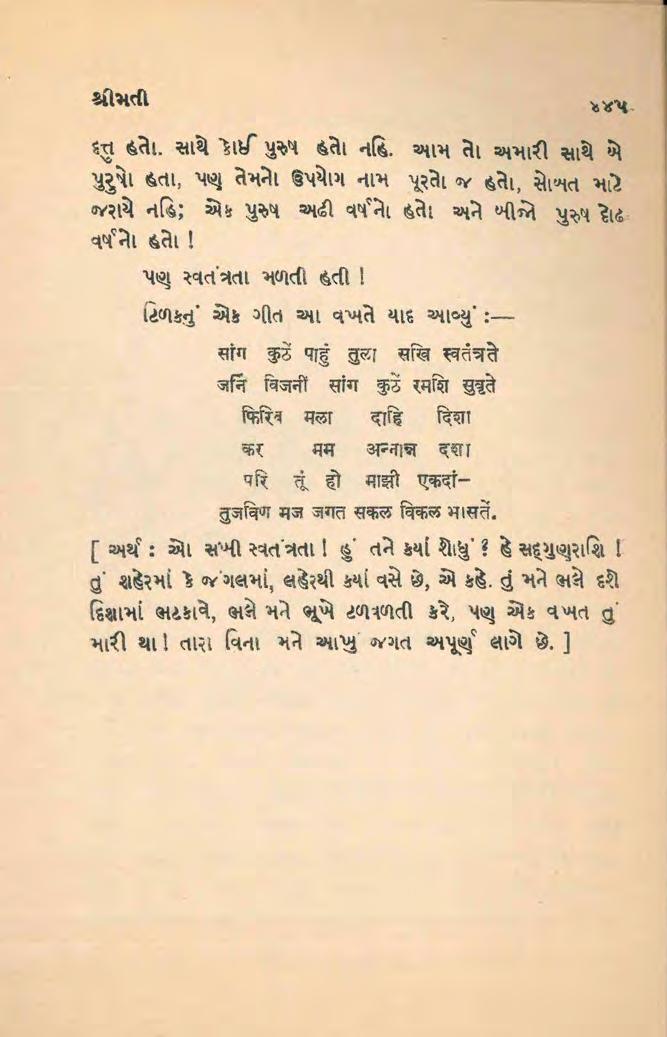 શ્રીમતી
૪૪૫
દત્ત હતો. સાથે કોઈ પુરુષ હતો નહિ. આમ તો અમારી સાથે બે
પુરુષો હતા, પણ તેમનો ઉપયોગ નામ પૂરતો જ હતો, સોબત માટે
જરાયે નહિ; એક પુરુષ અઢી વર્ષનો હતો અને બીજો પુરુષ દોઢ
વર્ષનો હતો !
પણ સ્વતંત્રતા મળતી હતી !
ટિળકનું એક ગીત આ વખતે યાદ આવ્યું :—
सांग कुठें पाहुं तुला सखि स्वतंत्रते
जनिं विजनीं सांग कुठें रमशि सुवृते
फिरिव मला दाहि दिशा
कर मम अन्नान्न दशा
परि तूं हो माझी एकदां—
तुजविण मज जगत सकल विकल भासतें.
[ અર્થ : ઓ સખી સ્વતંત્રતા ! હું તને ક્યાં શોધું ? હે સદ્‌ગુણરાશિ !
તું શહેરમાં કે જંગલમાં, લહેરથી ક્યાં વસે છે, એ કહે. તું મને ભલે દશે
દિશામાં ભટકાવે, ભલે મને ભૂખે ટળવળતી કરે, પણ એક વખત તું
મારી થા ! તારા વિના મને આખું જગત અપૂર્ણ લાગે છે. ]